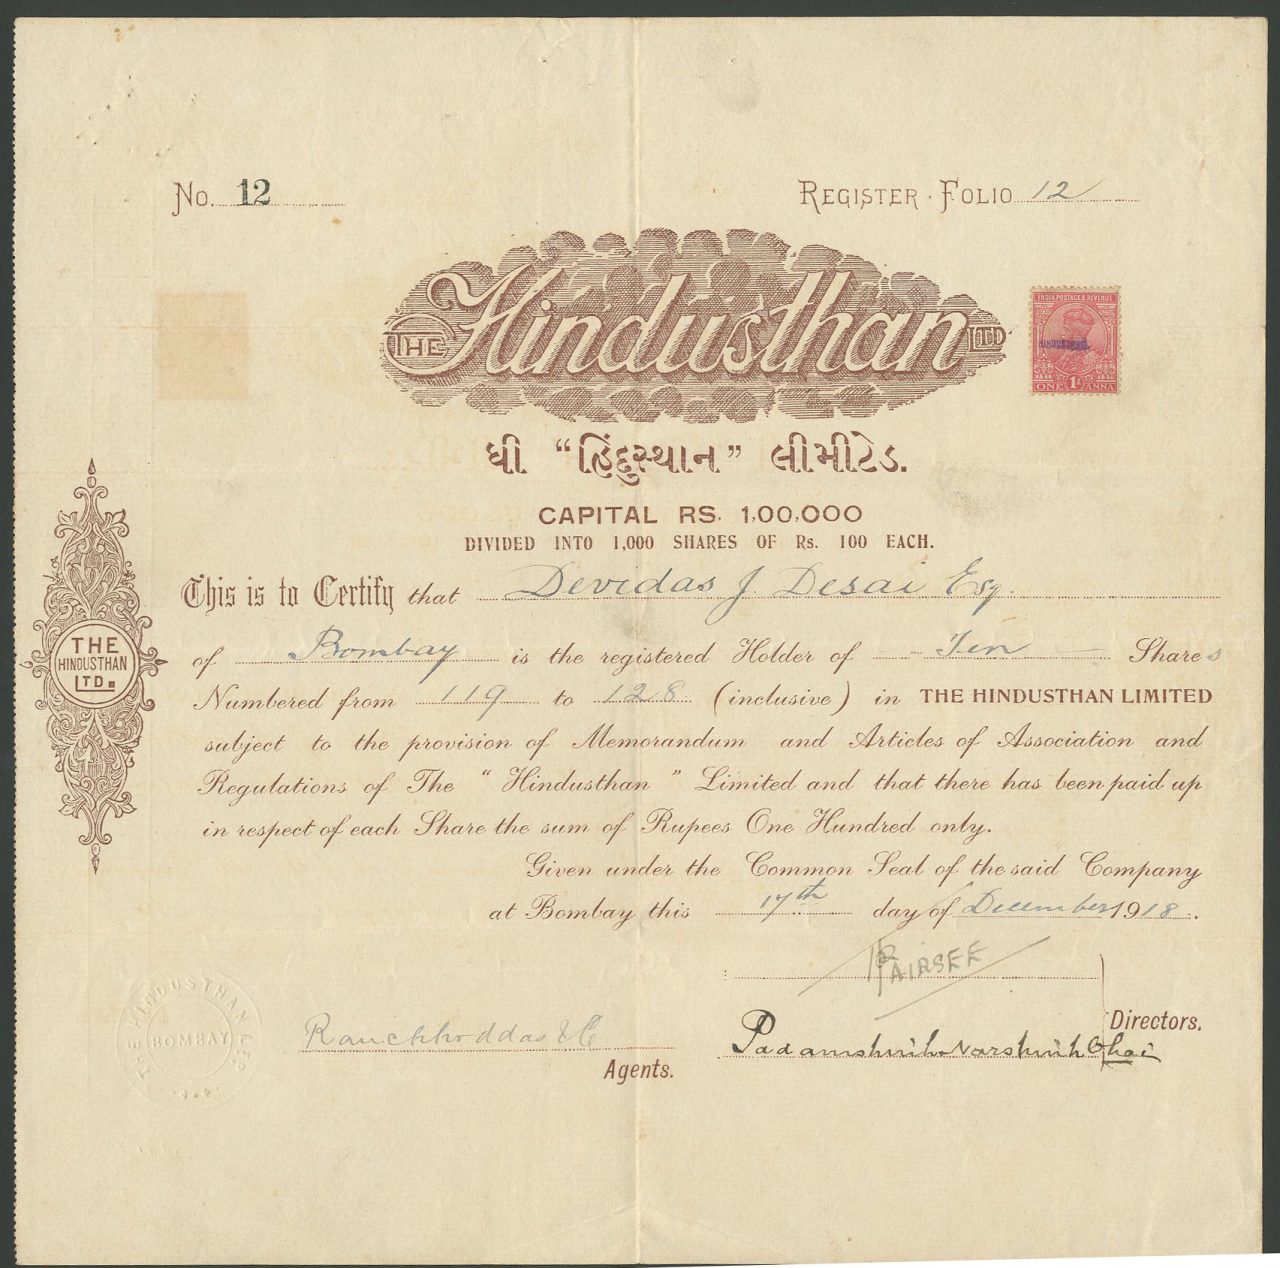 No. 12
REGISTER · FOLIO 12
THE Hindusthan LTD
INDIA POSTAGE & REVENUE
ONE 1A ANNA
ધી “હિંદુસ્થાન” લીમીટેડ.
CAPITAL RS. 1,00,000
DIVIDED INTO 1,000 SHARES OF Rs. 100 EACH.
This is to Certify that Devidas J. Desai Esq.
of Bombay is the registered Holder of Ten Shares
Numbered from 119 to 128 (inclusive) in THE HINDUSTHAN LIMITED
subject to the provision of Memorandum and Articles of Association and
Regulations of The “Hindusthan” Limited and that there has been paid up
in respect of each Share the sum of Rupees One Hundred only.
Given under the Common Seal of the said Company
at Bombay this 17th day of December 1918.
THE
HINDUSTHAN
LTD.
THE HINDUSTHAN LTD
BOMBAY
Ranchhoddas & Co
Agents.
Directors.